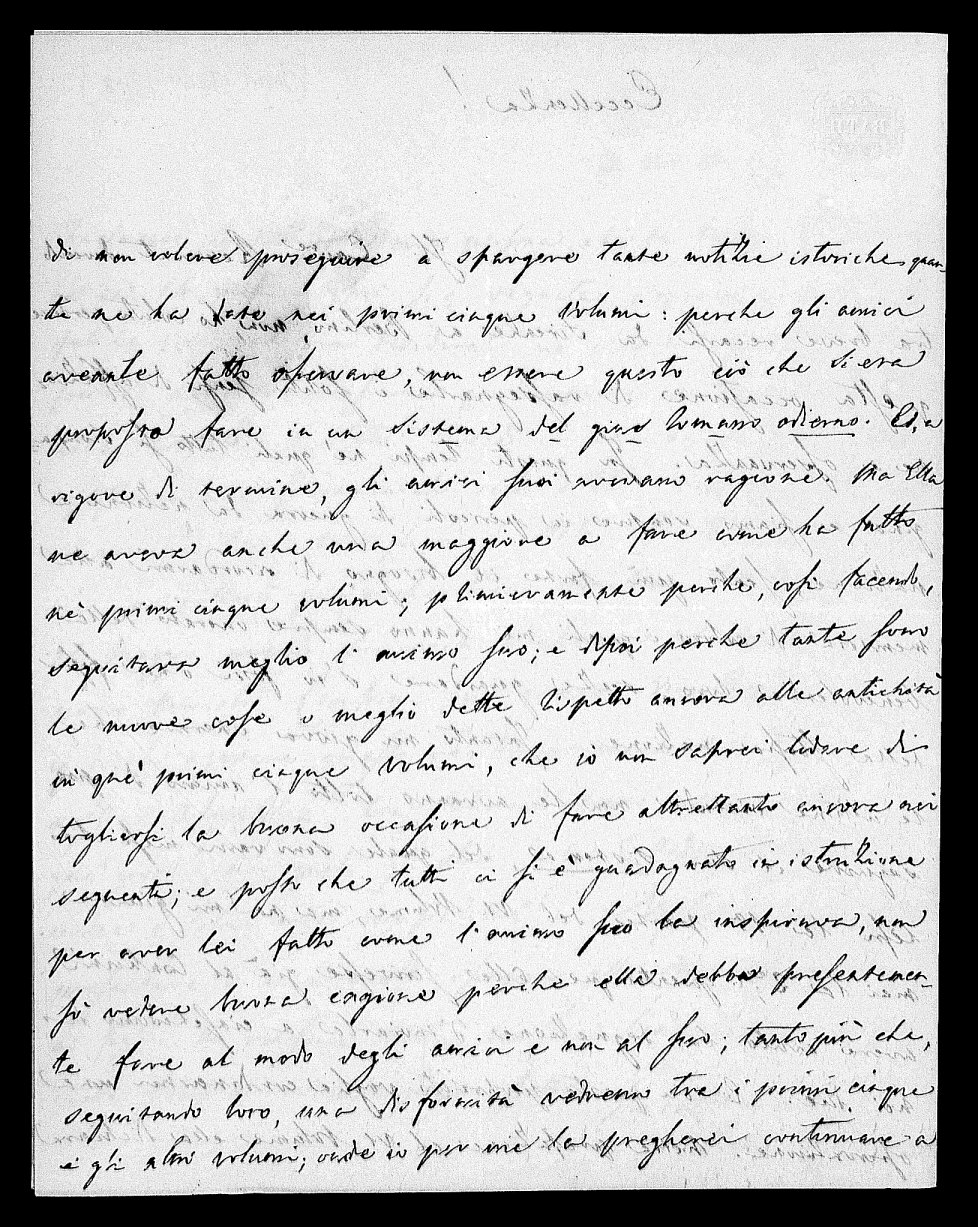 di non volere proseguire a spargere tante notizie istoriche quan-
te ne ha date nei primi cinque volumi: perche gli amici
aveanle fatto osservare, non essere questo ciò che si era
proposto fare in un sistema del gius Romano odierno. Ed, a
rigore di termine, gli amici suoi avevano ragione. Ma Ella
ne aveva anche una maggiore a fare come ha fatto
nè primi cinque volumi; primieramente perche, così facendo,
seguitava meglio l'animo suo; e dipoi perche tante sono
le nuove cose o meglio dette rispetto ancora alle antichità
in què primi cinque volumi, che io non saprei lodare di
togliersi la buona occasione di fare altrettanto ancora nei
seguenti; e posto che tutti ci si è guadagnato in istruzione
per aver lei fatto come l'animo suo la inspirava, non
sò vedere buona cagione perche ella debba presentemen-
te fare al modo degli amici e non al suo; tanto più che,
seguitando loro, una disformità vedremo tra i primi cinque
e gli altri volumi; onde io per me la pregherei continuare a